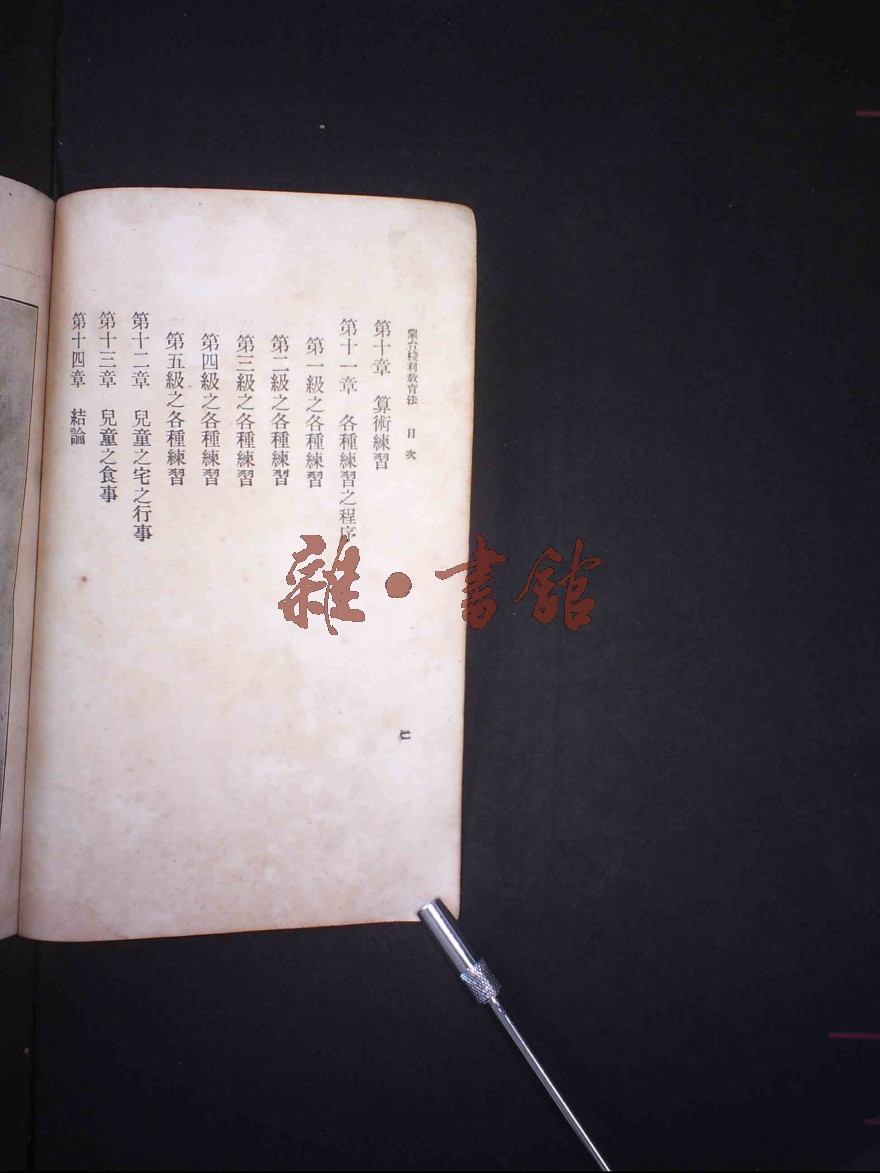 蒙台梭利教育法　目次
第十章　算術練習
第十一章　各種練習之程序
第一級之各種練習
第二級之各種練習
第三級之各種練習
第四級之各種練習
第五級之各種練習
第十二章　兒童之宅之行事
第十三章　兒童之食事
第十四章　結論
二
雜·書館